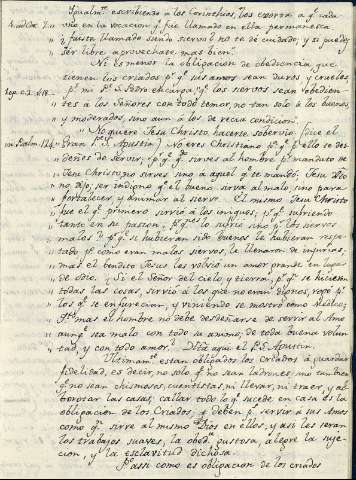 escribiendo a los Corintios, los exorta a qe. cada
uno en la vocacion qe. fue llamado en ella permanesca
" fuiste llamado siendo siervo? no te dé cuidado, y si puedes
" ser libre aprovechate mas bien.
Ni es menos la obligacion de obediencia que
tienen los criados pr. qe. sus amos sean duros y crueles
pr. Sn. Pedro encarga, qe. los siervos sean obedien-
tes á los Señores con todo temor, no tan solo á los buenos
y moderados, sino aun á los de recia condicion.
" No quiere Jesu Christo hacerte sobervio (dice el
Gran Pe. Sn. Agustin) No eres Christiano pa. qe. pr. ello se des-
" deñes de servir, pr. qe. qdo. sirves al hombre pr. mandato de
" Jesu Christo, no sirves sino a aquel qe. te mandó; Jesu
" ser indigno qe. el bueno sirva al malo, sino para
" fortalecer, y animar al siervo. El mismo Jesu Christo
" fue el qe. primero sirvió a los iniquos, pr. qe. sufriendo
" tanto en su pasion, pr. qn. lo sufrió sino pr. los siervos
" malos? pr. qe. si hubieran sido buenos le hubieran respe-
" tado pr. como eran malos siervos, le llenaron de injurias,
" mas el bendito Jesus les volvió un amor grande en lugar
" de odio, y si el Señor del cielo y tierra, pr. qn. se hicieron
" todas las cosas, sirvió a los que no eran dignos, rogó pr.
" los qe. se enfurecian, y viniendo se mostró como Medico;
" mas el hombre no debe desdeñarse de servir al Amo
" aunqe. sea malo con todo su animo, de toda buena volun-
" tad, y con todo amor. Asta aqui el P. S. Agustin.
Ultimamte. estan obligados los criados á guardar
fidelidad, es decir, no solo qe. no sean ladrones, mas tambien
qe. no sean chismosos, cuentistas, ni llevar, ni traer, y al-
borotar las casas; callar todo lo qe. sucede en casa es la
obligacion de los Criados, y deben pr. servir á sus Amos
como qn. sirve al mismo Dios en ellos, y asi les seran
los trabajos suaves, la obeda. gustosa, alegre la suje-
cion, y la esclavitud dichosa
Po. assi como es obligacion de los criados